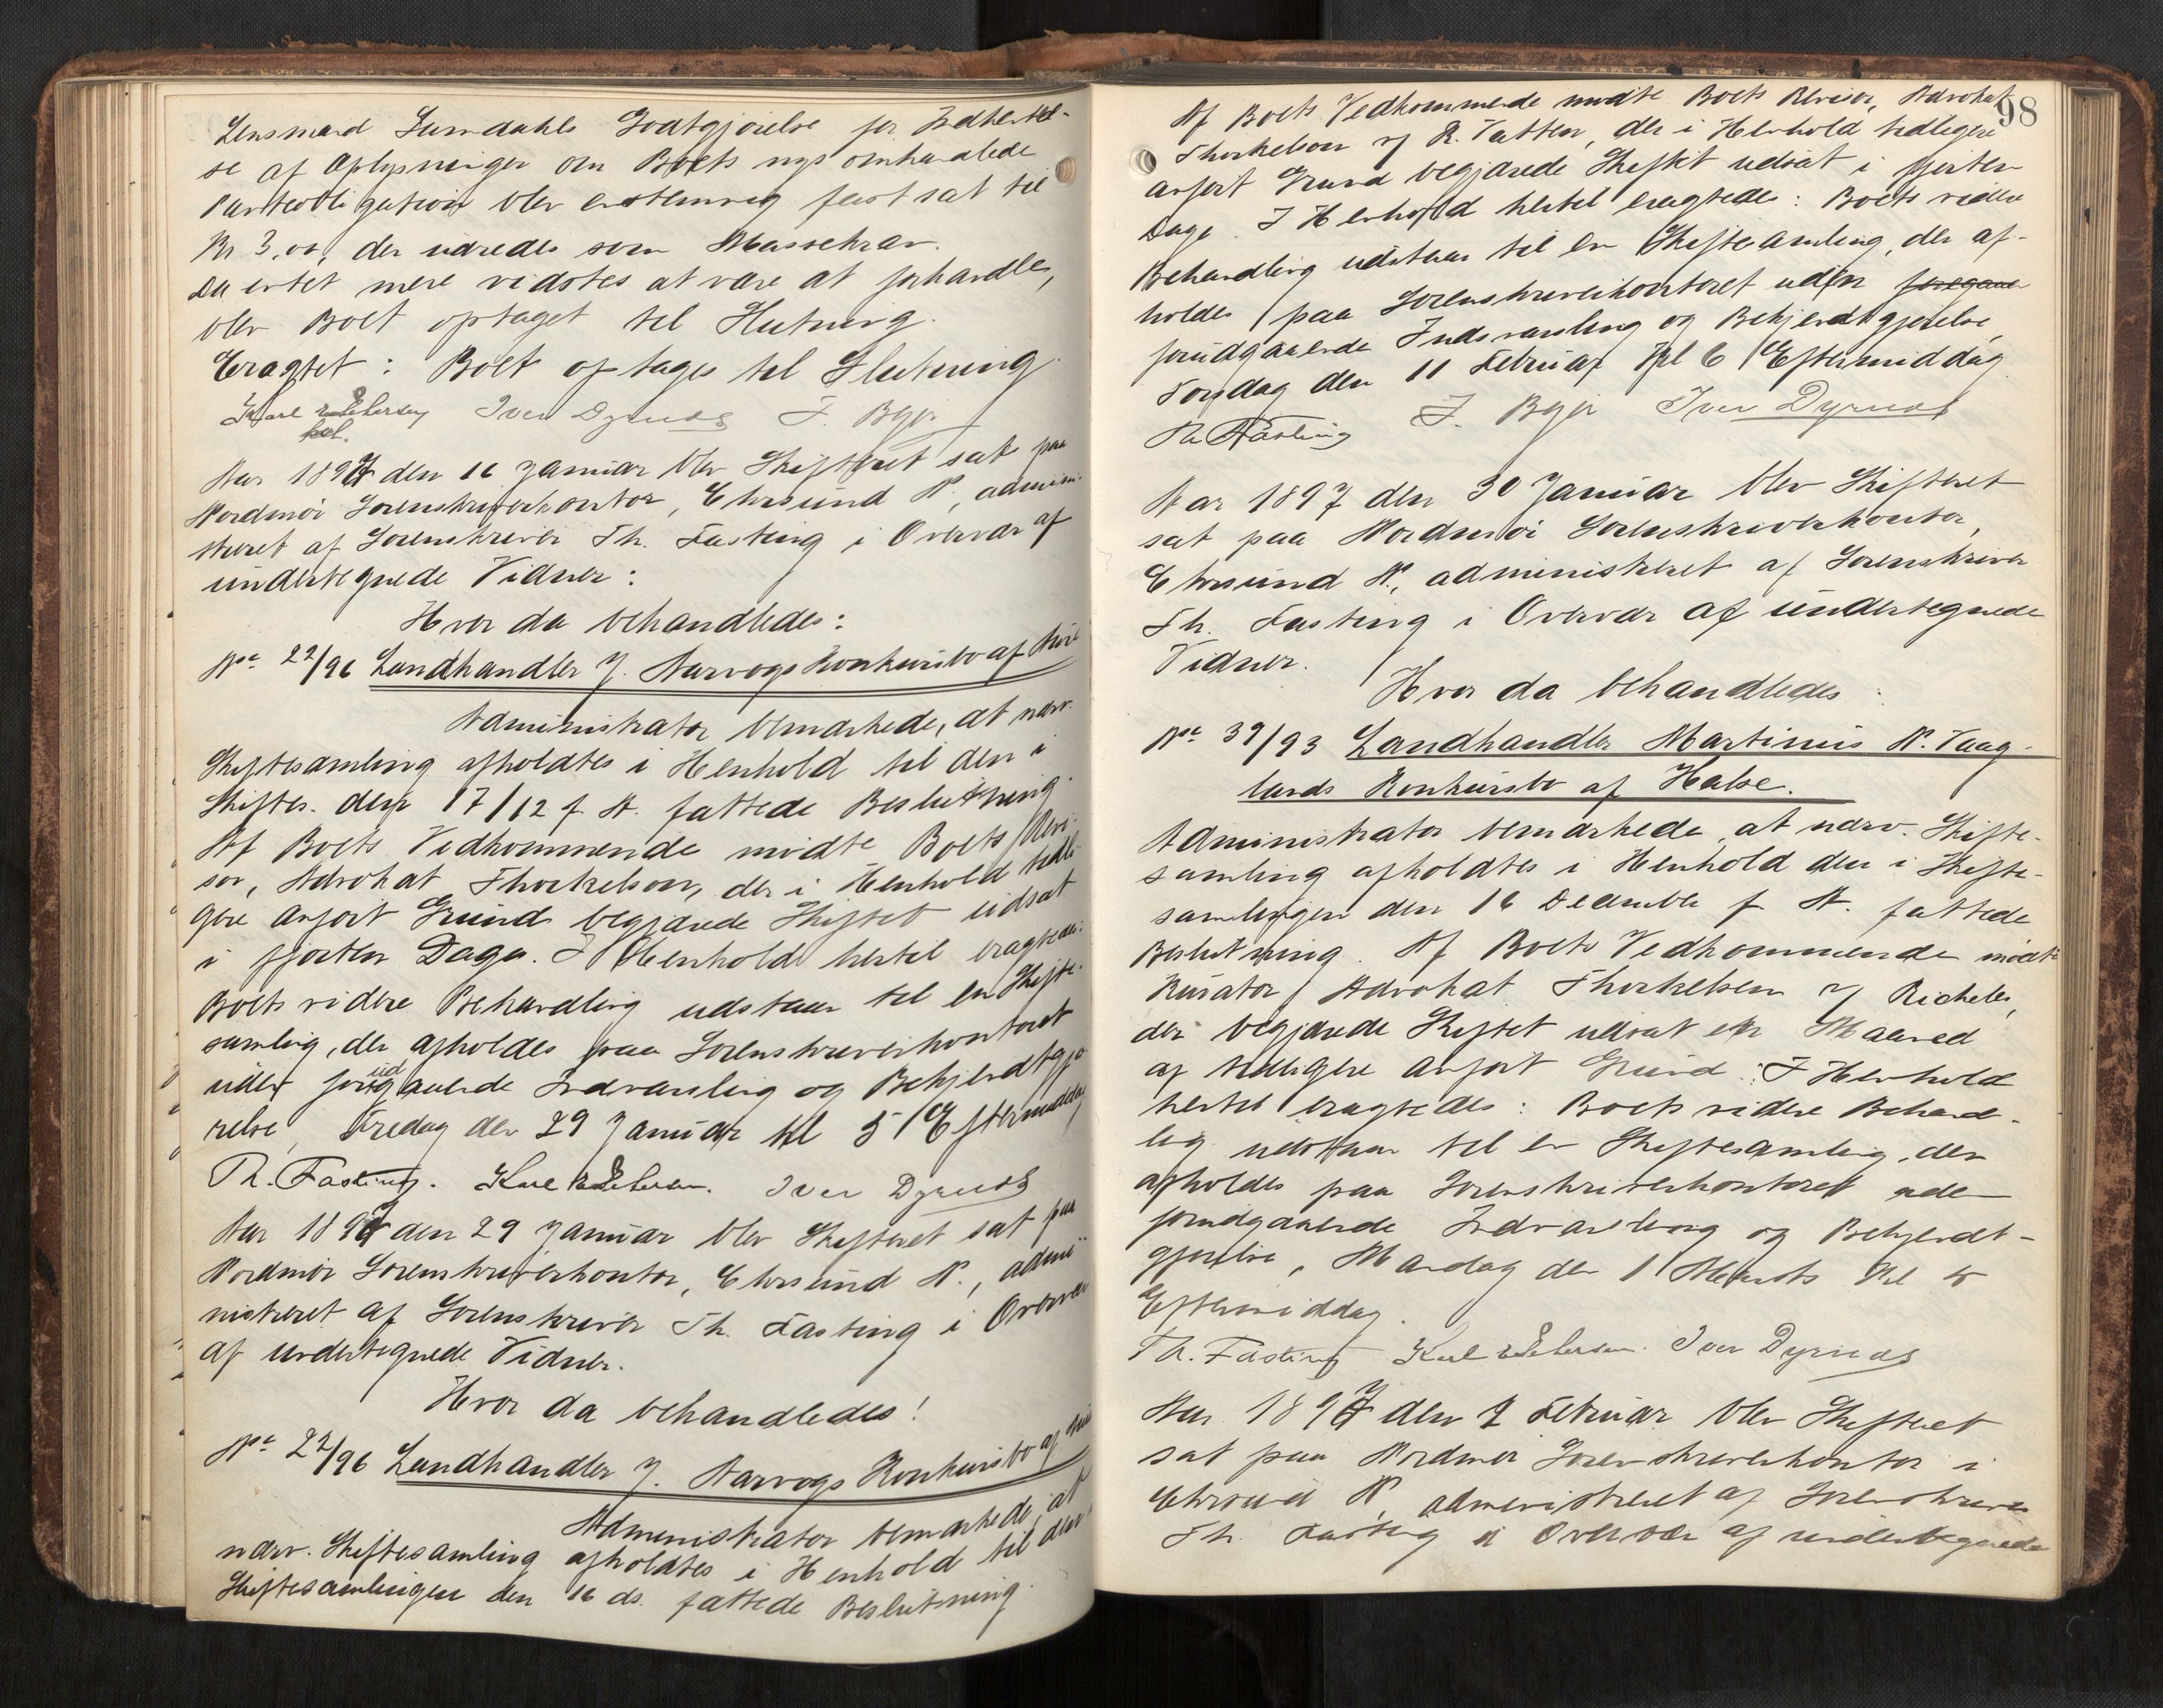 Lensmand Sundahls Godtgjørelse for Indhentel-
se af Oplysninger om Boets nys omhandlede
Panteobligation blev enstemmig fastsat til
Kr 3,00, der udredes som Massekrav.
Da intet mere vidstes at være at forhandle,
blev Boet optaget til Slutning.
Eragtet: Boet optages til Slutning.
Karl Petersen Iver Dyrnes J. Bye
kst.
Aar 1897 den 16 Januar blev Skifteret sat paa
Nordmør Sorenskriverkontor, Chrsund N., admini-
streret af Sorenskriver Th. Fasting i Overvær af
undertegnede Vidner:
Hvor da behandledes:
No 22/96 Landhandler J. Aarvogs Konkursbo af Aure
Administrator bemærkede, at nærv.
Skiftesamling afholdtes i Henhold til den i
Skiftes. den 17/12 f. A. fattede Beslutning.
Af Boets Vedkommende mødte Boets Revi-
sor, Advokat Thorkelson, der i Henhold tidli-
gere anført Grund begjærede Skiftet udsat
i fjorten Dage. I Henhold hertil eragtedes:
Boets videre Behandling udstaar til en Skifte-
samling, der afholdes paa Sorenskriverkontoret
uden forudgaaende Indvarsling og Bekjendtgjø-
relse, Fredag den 29 Januar Kl 5 Eftermiddag
Th. Fasting. Karl Petersen. Iver Dyrnes
Aar 1897 den 29 Januar blev Skifteret sat paa
Nordmør Sorenskriverkontor, Chrsund N., admi-
nistreret af Sorenskriver Th. Fasting i Overvær
af undertegnede Vidner.
Hvor da behandledes!
No 22/96 Landhandler J. Aarvogs Konkursbo af Aure
Administrator bemærkede, at
nærv. Skiftesamling afholdtes i Henhold til den i
Skiftesamlingen den 16 ds. fattede Beslutning.
98
Af Boets Vedkommende mødte Boets Revisor, Advokat
Thorkelson v/ R. Vatten, der i Henhold tidligere
anført Grund begjærede Skiftet udsat i fjorten
Dage. I Henhold hertil eragtedes: Boets videre
Behandling udstaar til en Skiftesamling, der af-
holdes paa Sorenskriverkontoret uden foregaae
forudgaaende Indvarsling og Bekjendtgjørelse,
Torsdag den 11 Februar Kl 6 Eftermiddag.
Th Fasting J. Bye Iver Dyrnes
Aar 1897 den 30 Januar blev Skifteret
sat paa Nordmør Sorenskriverkontor,
Chrsund N., administreret af Sorenskriver
Th. Fasting i Overvær af undertegnede
Vidner.
Hvor da behandledes:
No 39/93 Landhandler Martinus N. Vaag-
lands Konkursbo af Halse.
Administrator bemærkede, at nærv. Skifte-
samling afholdtes i Henhold den i Skifte-
samlingen den 16 December f A. fattede
Beslutning. Af Boets Vedkommende mødte
Kurator, Advokat Thorkelsen v/ Richeles,
der begjærede Skiftet udsat en Maaned
af tidligere anført Grund. I Henhold
hertil eragtedes: Boets videre Behand-
lig udstaar til en Skiftesamling, der
afholdes paa Sorenskriverkontoret uden
forudgaaende Indvarsling og Bekjendt-
gjørelse, Mandag den 1 Marts Kl 5
Eftermiddag.
Th. Fasting Karl Petersen. Iver Dyrnes
Aar 1897 den 2 Februar blev Skifteret
sat paa Nordmør Sorenskriverkontor i
Chrsund N, administreret af Sorenskriver
Th. Fasting i Overvær af undertegnede